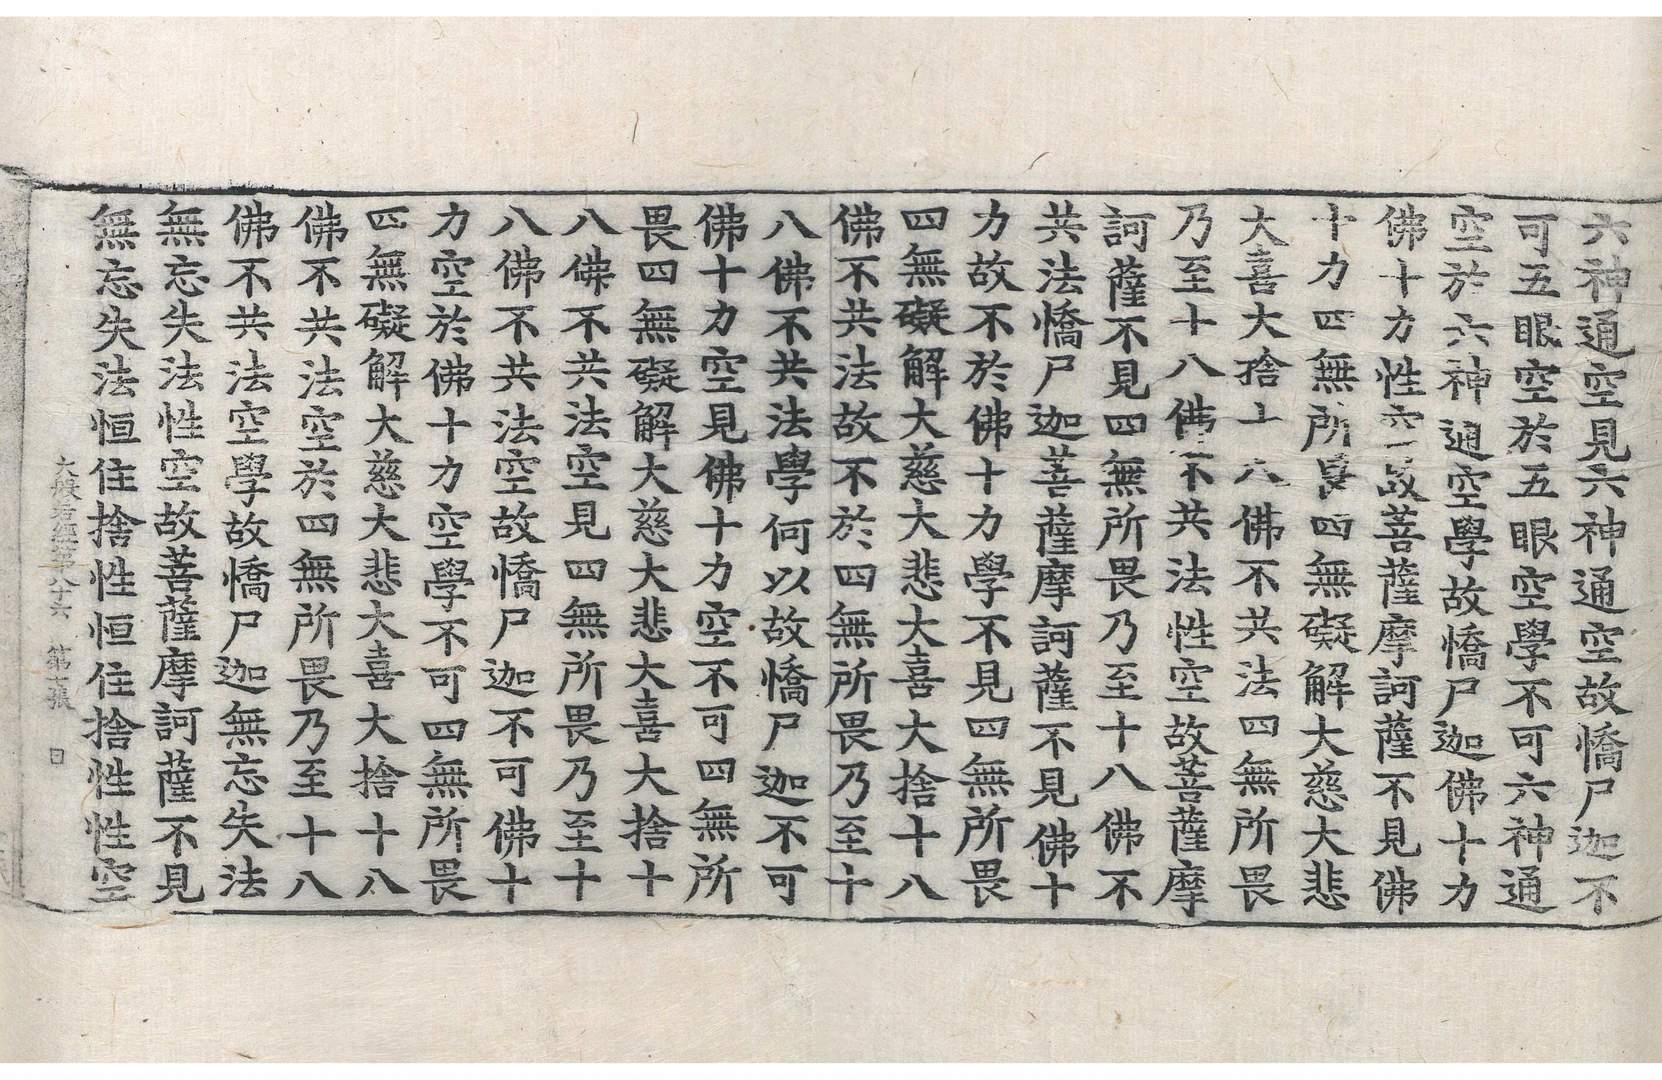 六神通空見六神通空故憍尸迦不
可五眼空於五眼空學不可六神通
空於六神通空學故憍尸迦佛十力
佛十力性空故菩薩摩訶薩不見佛
十力四無所畏四無礙解大慈大悲
大喜大捨十八佛不共法四無所畏
乃至十八佛不共法性空故菩薩摩
訶薩不見四無所畏乃至十八佛不
共法憍尸迦菩薩摩訶薩不見佛十
力故不於佛十力學不見四無所畏
四無礙解大慈大悲大喜大捨十八
佛不共法故不於四無所畏乃至十
八佛不共法學何以故憍尸迦不可
佛十力空見佛十力空不可四無所
畏四無礙解大慈大悲大喜大捨十
八佛不共法空見四無所畏乃至十
八佛不共法空故憍尸迦不可佛十
力空於佛十力空學不可四無所畏
四無礙解大慈大悲大喜大捨十八
佛不共法空於四無所畏乃至十八
佛不共法空學故憍尸迦無忘失法
無忘失法性空故菩薩摩訶薩不見
無忘失法恒住捨性恒住捨性性空
大般若經第八十六 第七張 日